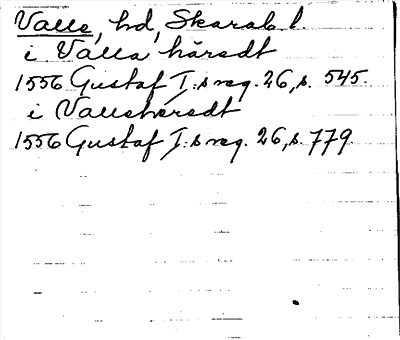 Valle, hd, Skarab. l.
i Valla häredt
1556 Gustaf I:s reg. 26, s. 545.
i Vallshäredt
1556 Gustaf I:s reg. 26, s. 779.